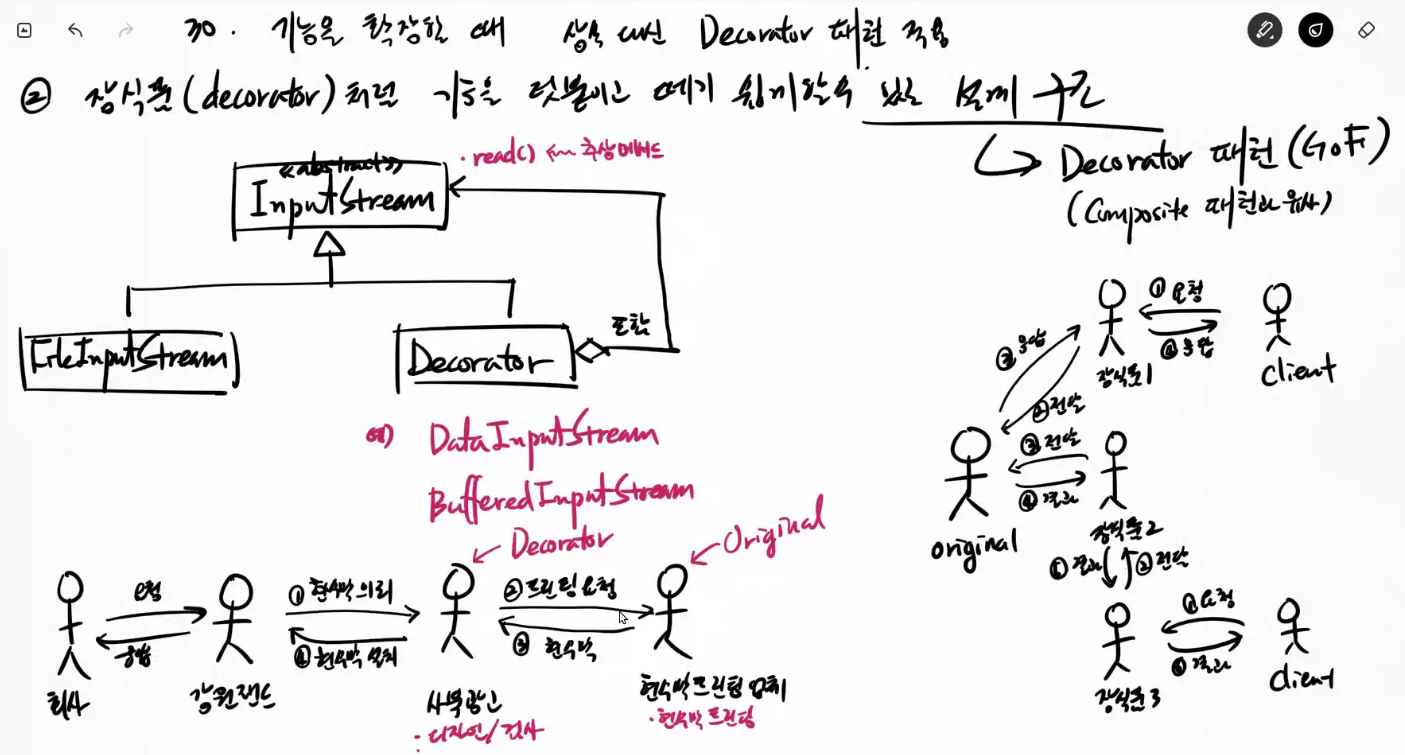 30. 기능을 확장할 때 상속 대신 Decorator 패턴 적용
② 장식품(decorator)처럼 기능을 덧붙이고 떼기 쉽게할 수 있는 설계 구조
Decorator 패턴(GoF)
(Composite 패턴과 유사)
<<abstract>>
InputStream
· read() 추상메서드
FileInputStream
Decorator
포함
예) DataInputStream
BufferedInputStream
Decorator
Original
요청
응답
① 현수막 의뢰
④ 현수막 설치
② 프린팅 요청
③ 현수막
회사
강원랜드
사북광고
· 디자인/검사
현수막프린팅 업체
· 현수막 프린팅
① 요청
④ 응답
장식품1
client
③ 응답
② 전달
original
③ 전달
④ 결과
장식품2
⑤ 결과
② 전달
① 요청
⑥ 결과
장식품3
client